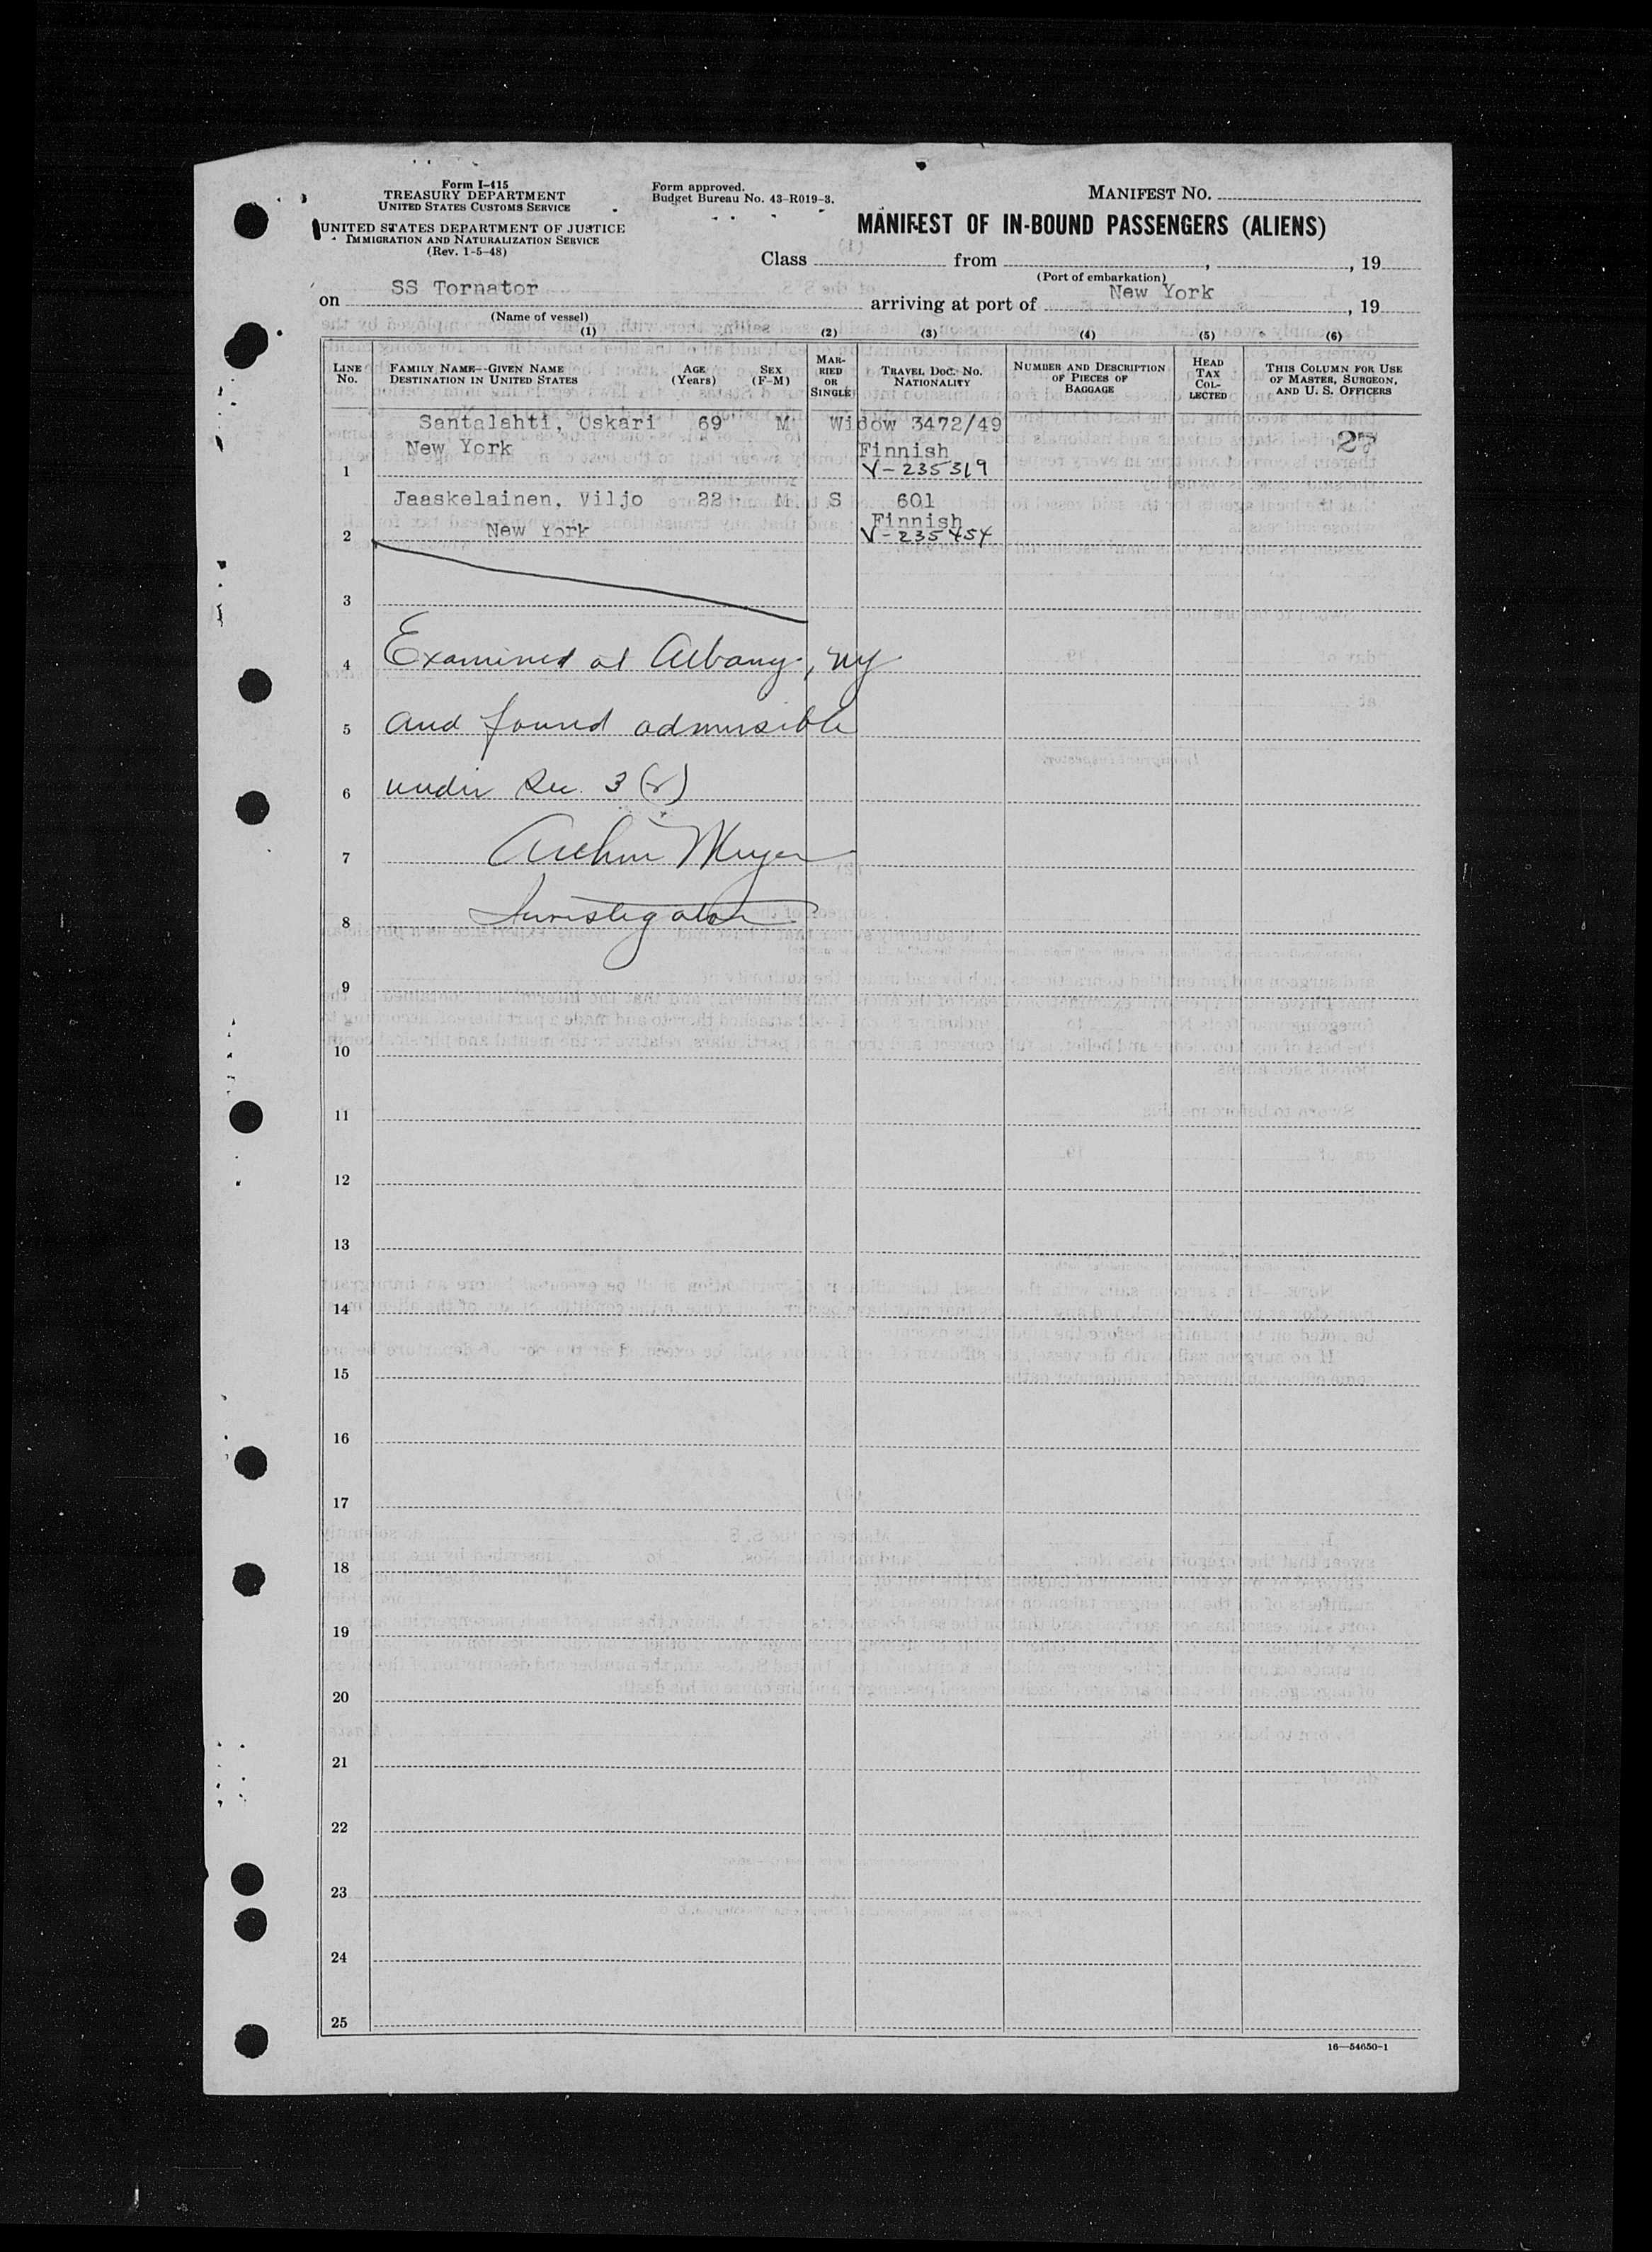 Form I-415
TREASURY DEPARTMENT
UNITED STATES CUSTOMS SERVICE
UNITED STATES DEPARTMENT OF JUSTICE
IMMIGRATION AND NATURALIZATION SERVICE
(Rev. 1-5-48)
Form approved.
Budget Bureau No. 43-R019-3.
MANIFEST NO.
MANIFEST OF IN-BOUND PASSENGERS (ALIENS)
Class from , , 19
(Port of embarkation)
on SS Tornator arriving at port of New York , 19
(Name of vessel)
(1) (2) (3) (4) (5) (6)
LINE NO.
FAMILY NAME--GIVEN NAME
DESTINATION IN UNITED STATES
AGE
(Years)
SEX
(F-M)
MAR-
RIED
OR
SINGLE
TRAVEL DOC. NO.
NATIONALITY
NUMBER AND DESCRIPTION
OF PIECES OF
BAGGAGE
HEAD
TAX
COL-
LECTED
THIS COLUMN FOR USE
OF MASTER, SURGEON,
AND U. S. OFFICERS
Santalahti, Oskari 69 M Widow 3472/49
New York Finnish
1 V-235319
Jaaskelainen, Viljo 22 M S 601
New York Finnish
2 V-235454
3
4 Examined at Albany, NY
5 and found admissible
6 under Sec. 3
7 Meyer
8 Investigator
9
10
11
12
13
14
15
16
17
18
19
20
21
22
23
24
25
16-54650-1